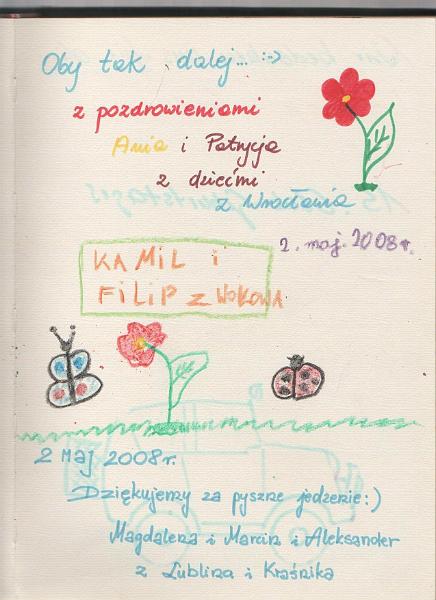 Oby tak dalej... :->
z pozdrowieniami
Ania i Patrycja
z dziećmi
z Wrocławia
2. maj. 2008r.
KAMIL i
FiLiP z WOKOWA
2 maj 2008r.
Dziękujemy za pyszne jedzenie :)
Magdalena i Marcin i Aleksander
z Lublina i Kraśnika